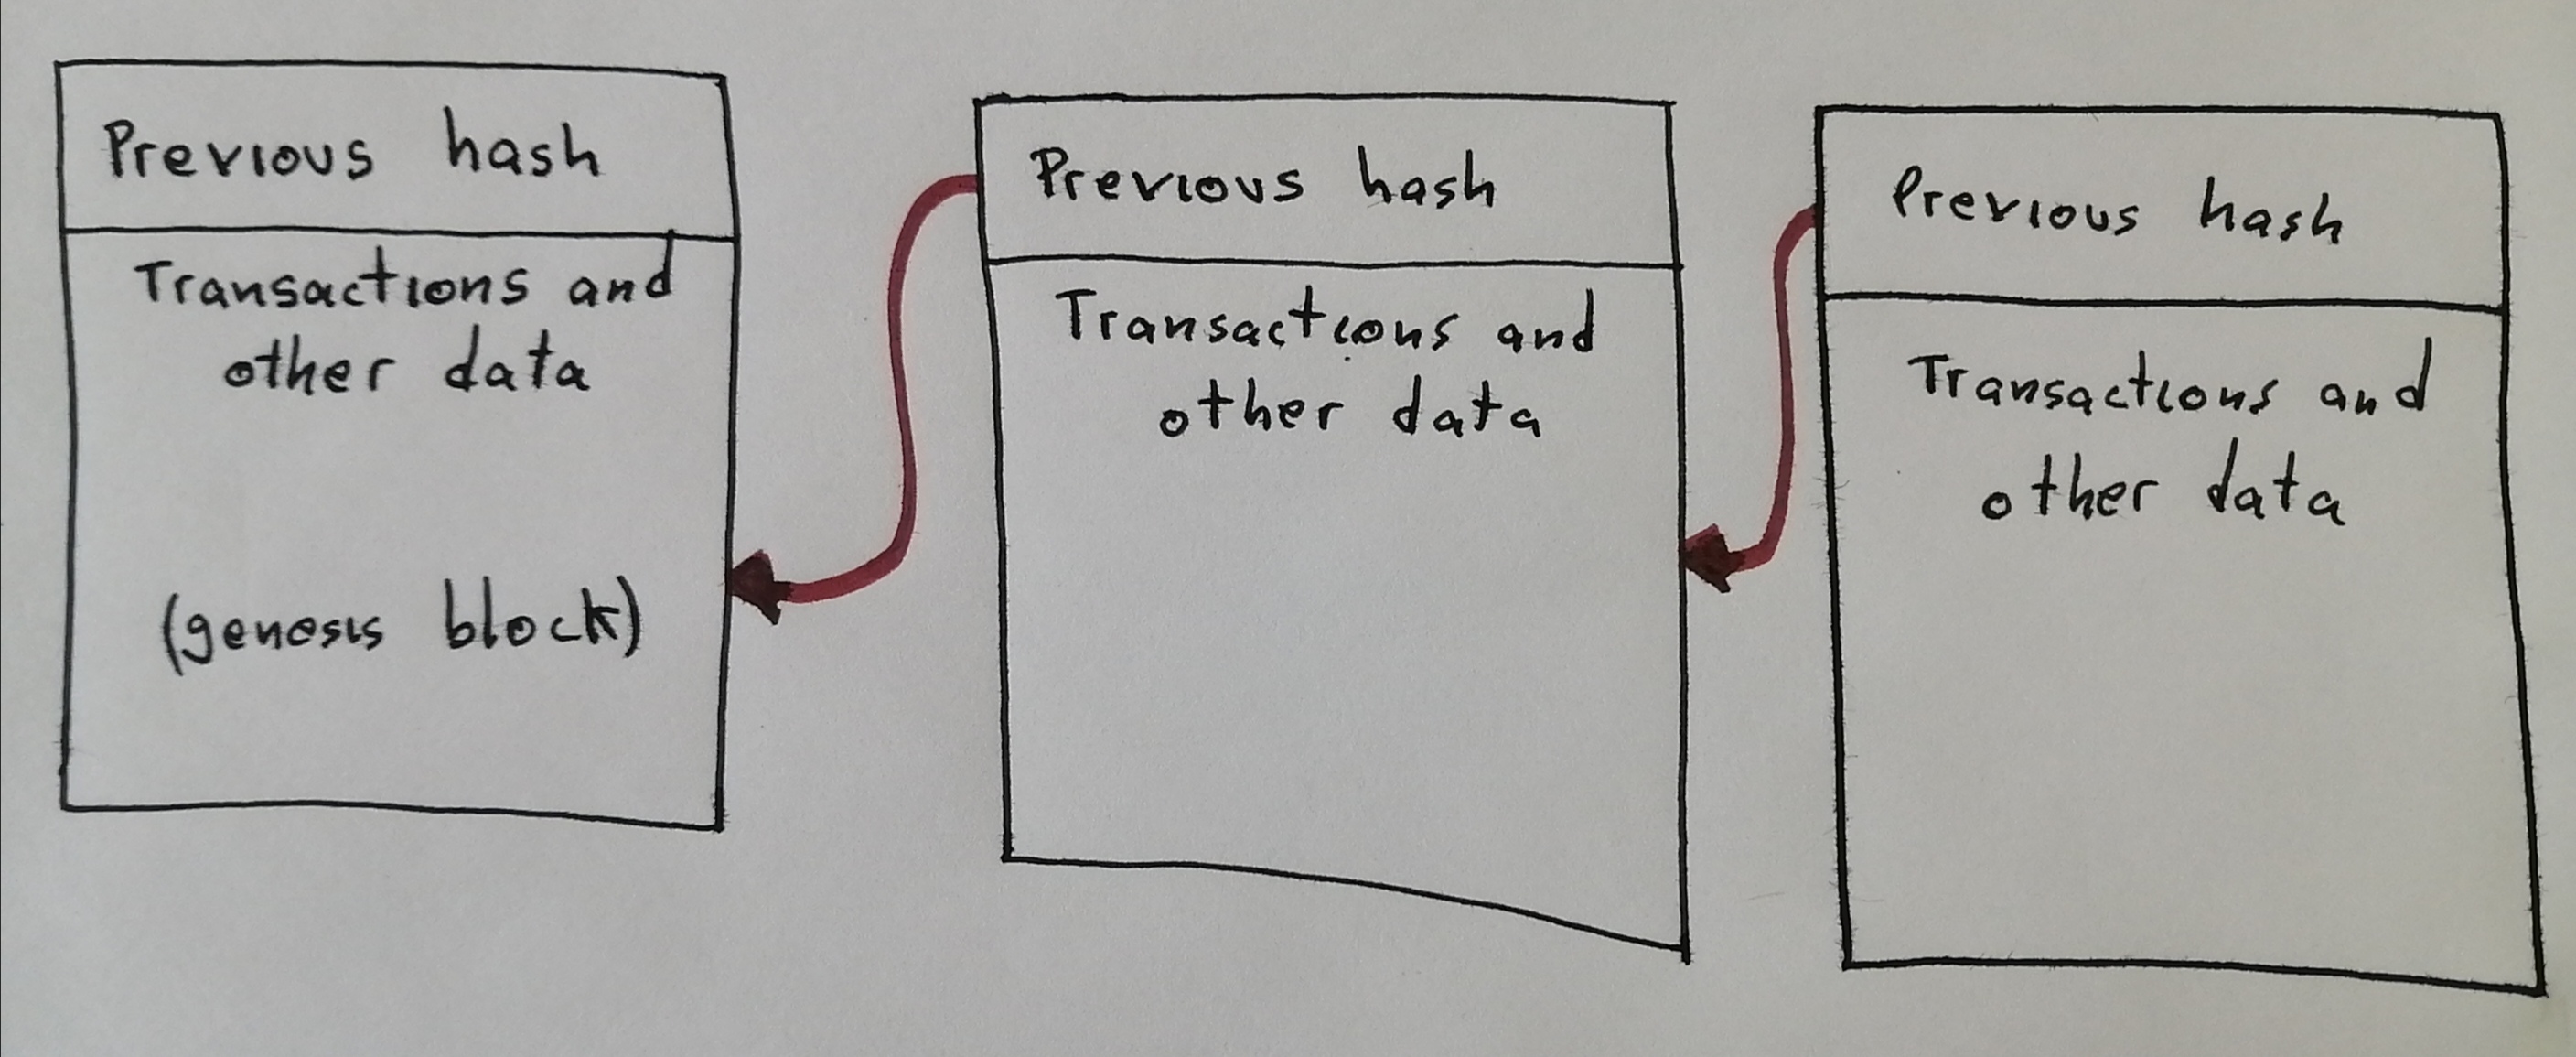 Previous hash
Transactions and
other data
(genesis block)
Previous hash
Transactions and
other data
Previous hash
Transactions and
other data